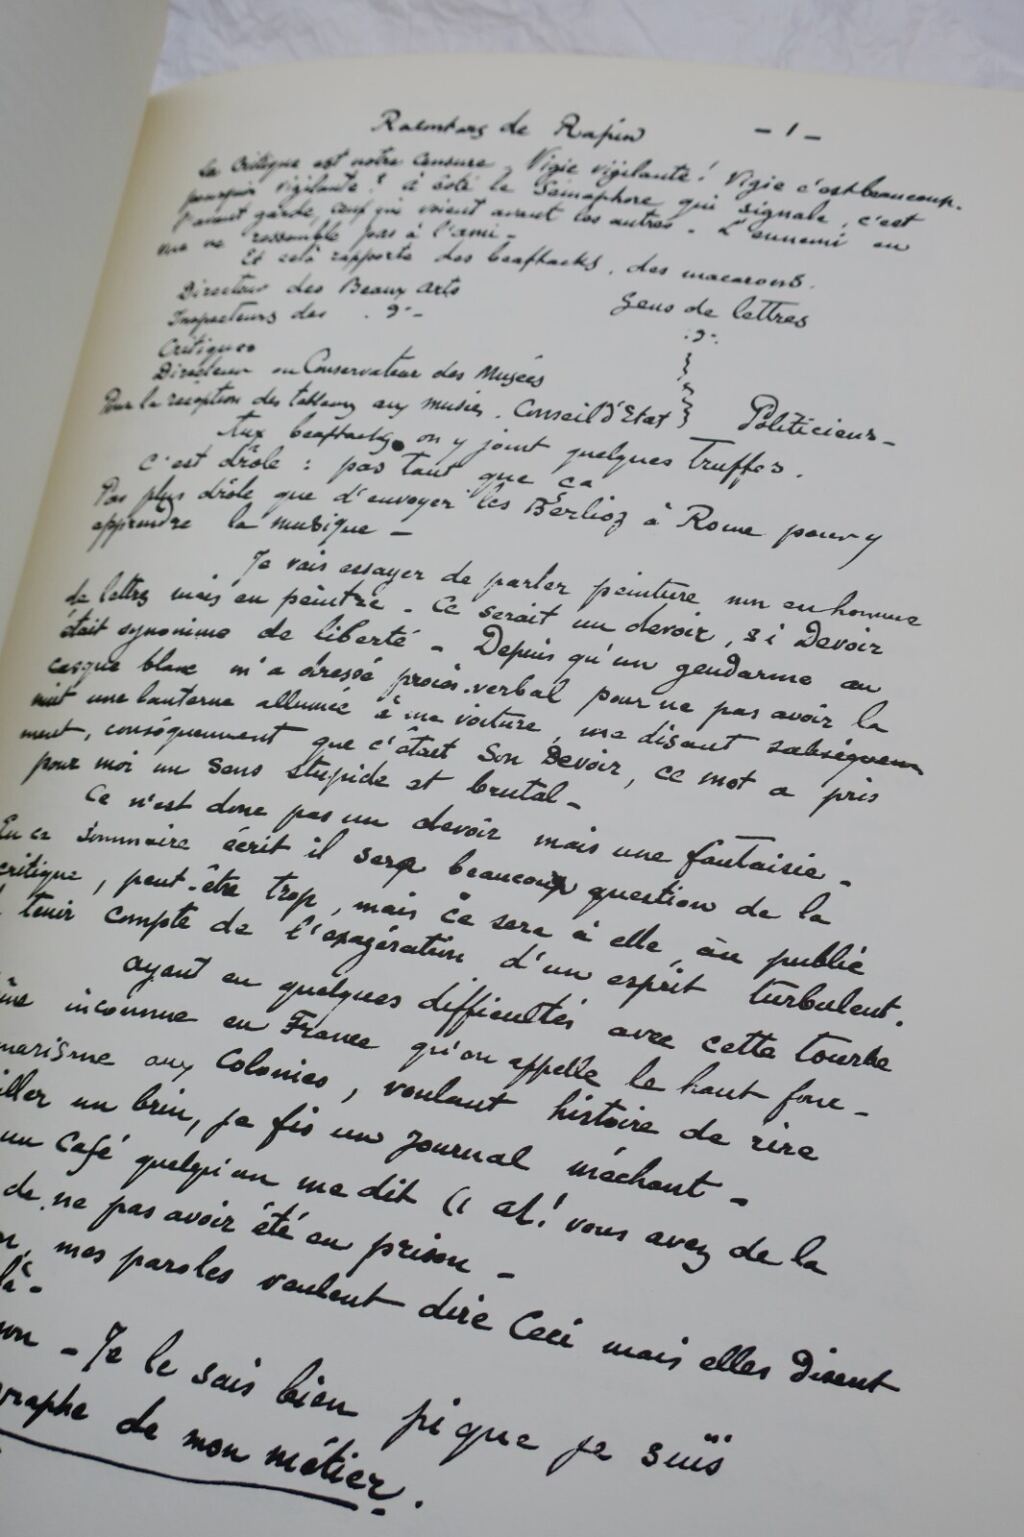 Racontars de Rapin - 1 -
La Critique est notre censure, Vigie vigilante! Vigie c'est beaucoup.
pourquoi vigilante? à côté le Sémaphore qui signale, c'est
l'avant garde, ceux qui voient avant les autres - L'ennemi en
vue ne ressemble pas à l'ami -
Et celà rapporte des beaftacks, des macarons.
Directeur des Beaux arts Gens de lettres
Inspecteurs des . d°- . d°.
Critiques
Directeur ou Conservateur des Musées
Pour la réception des tableaux aux musées. Conseil D'Etat Politiciens -
Aux beaftacks on y joint quelques Truffes.
C'est drôle : pas tant que ça
Pas plus drôle que d'envoyer les Bérlioz à Rome pour y
apprendre la musique -
Je vais essayer de parler peinture non en homme
de lettres mais en peintre - Ce serait un devoir, si Devoir
était synonime de liberté - Depuis qu'un gendarme au
casque blanc m'a dressé procès-verbal pour ne pas avoir la
nuit une lanterne allumée à ma voiture, me disant subséquem
ment, conséquemment que c'était Son Devoir, ce mot a pris
pour moi un sens stupide et brutal -
Ce n'est donc pas un devoir mais une fantaisie -
En ce sommaire écrit il sera beaucoup question de la
critique, peut-être trop, mais ce sera à elle, au public
tenir compte de l'exagération d'un esprit turbulent.
ayant eu quelques difficultés avec cette tourbe
inconnue en France qu'on appelle le haut fonc-
marisme aux Colonies, voulant histoire de rire
iller un brin, je fis un Journal méchant -
un Café quelqu'un me dit (( ah! vous avez de la
de ne pas avoir été en prison -
mes paroles veulent dire Ceci mais elles disent
là -
on - Je le sais bien pi que je suis
graphe de mon métier.